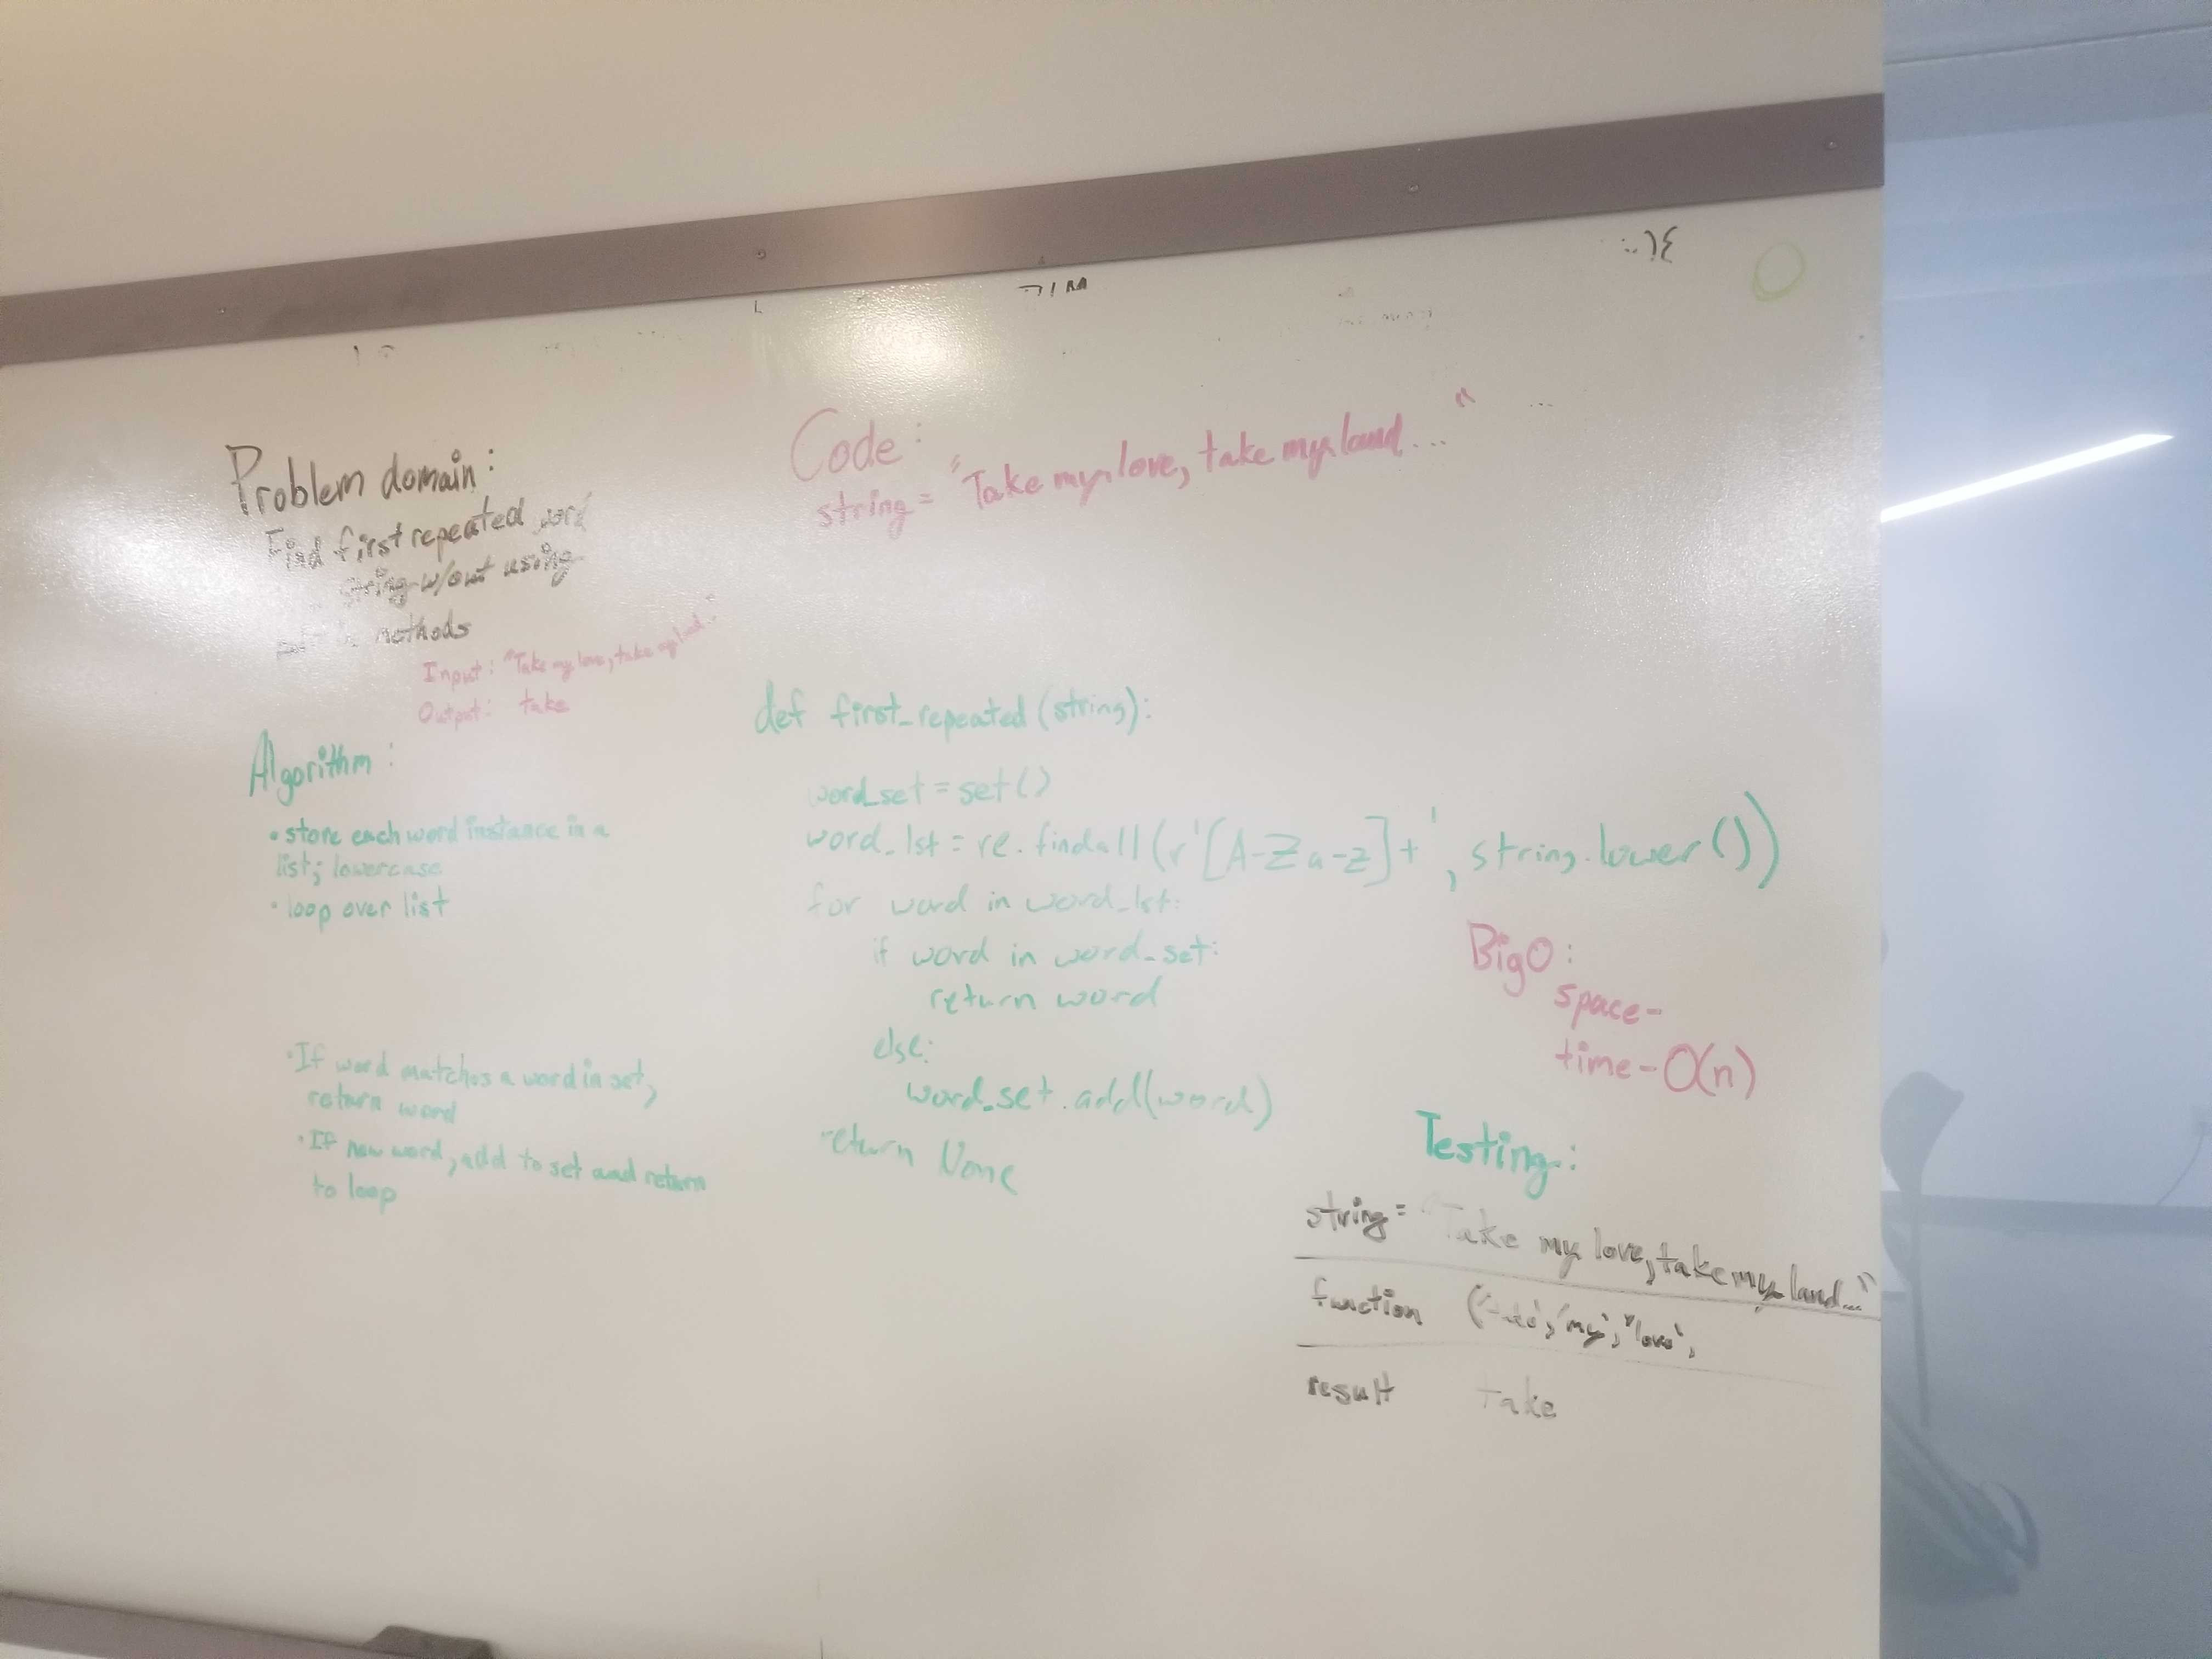 Problem domain:
Find first repeated word
string w/out using
methods
Input: "Take my love, take my land..."
Output: take
Algorithm:
• store each word instance in a
list; lowercase
• loop over list
• If word matches a word in set,
return word
• If new word, add to set and return
to loop
Code:
string = "Take my love, take my land..."
def first_repeated (string):
word_set = set()
word_lst = re.findall(r'[A-Za-z]+', string.lower())
for word in word_lst:
if word in word_set:
return word
else:
word_set.add(word)
return None
Big O:
space-
time - O(n)
Testing:
string = "Take my love, take my land..."
function ( 'my', 'love',
result take